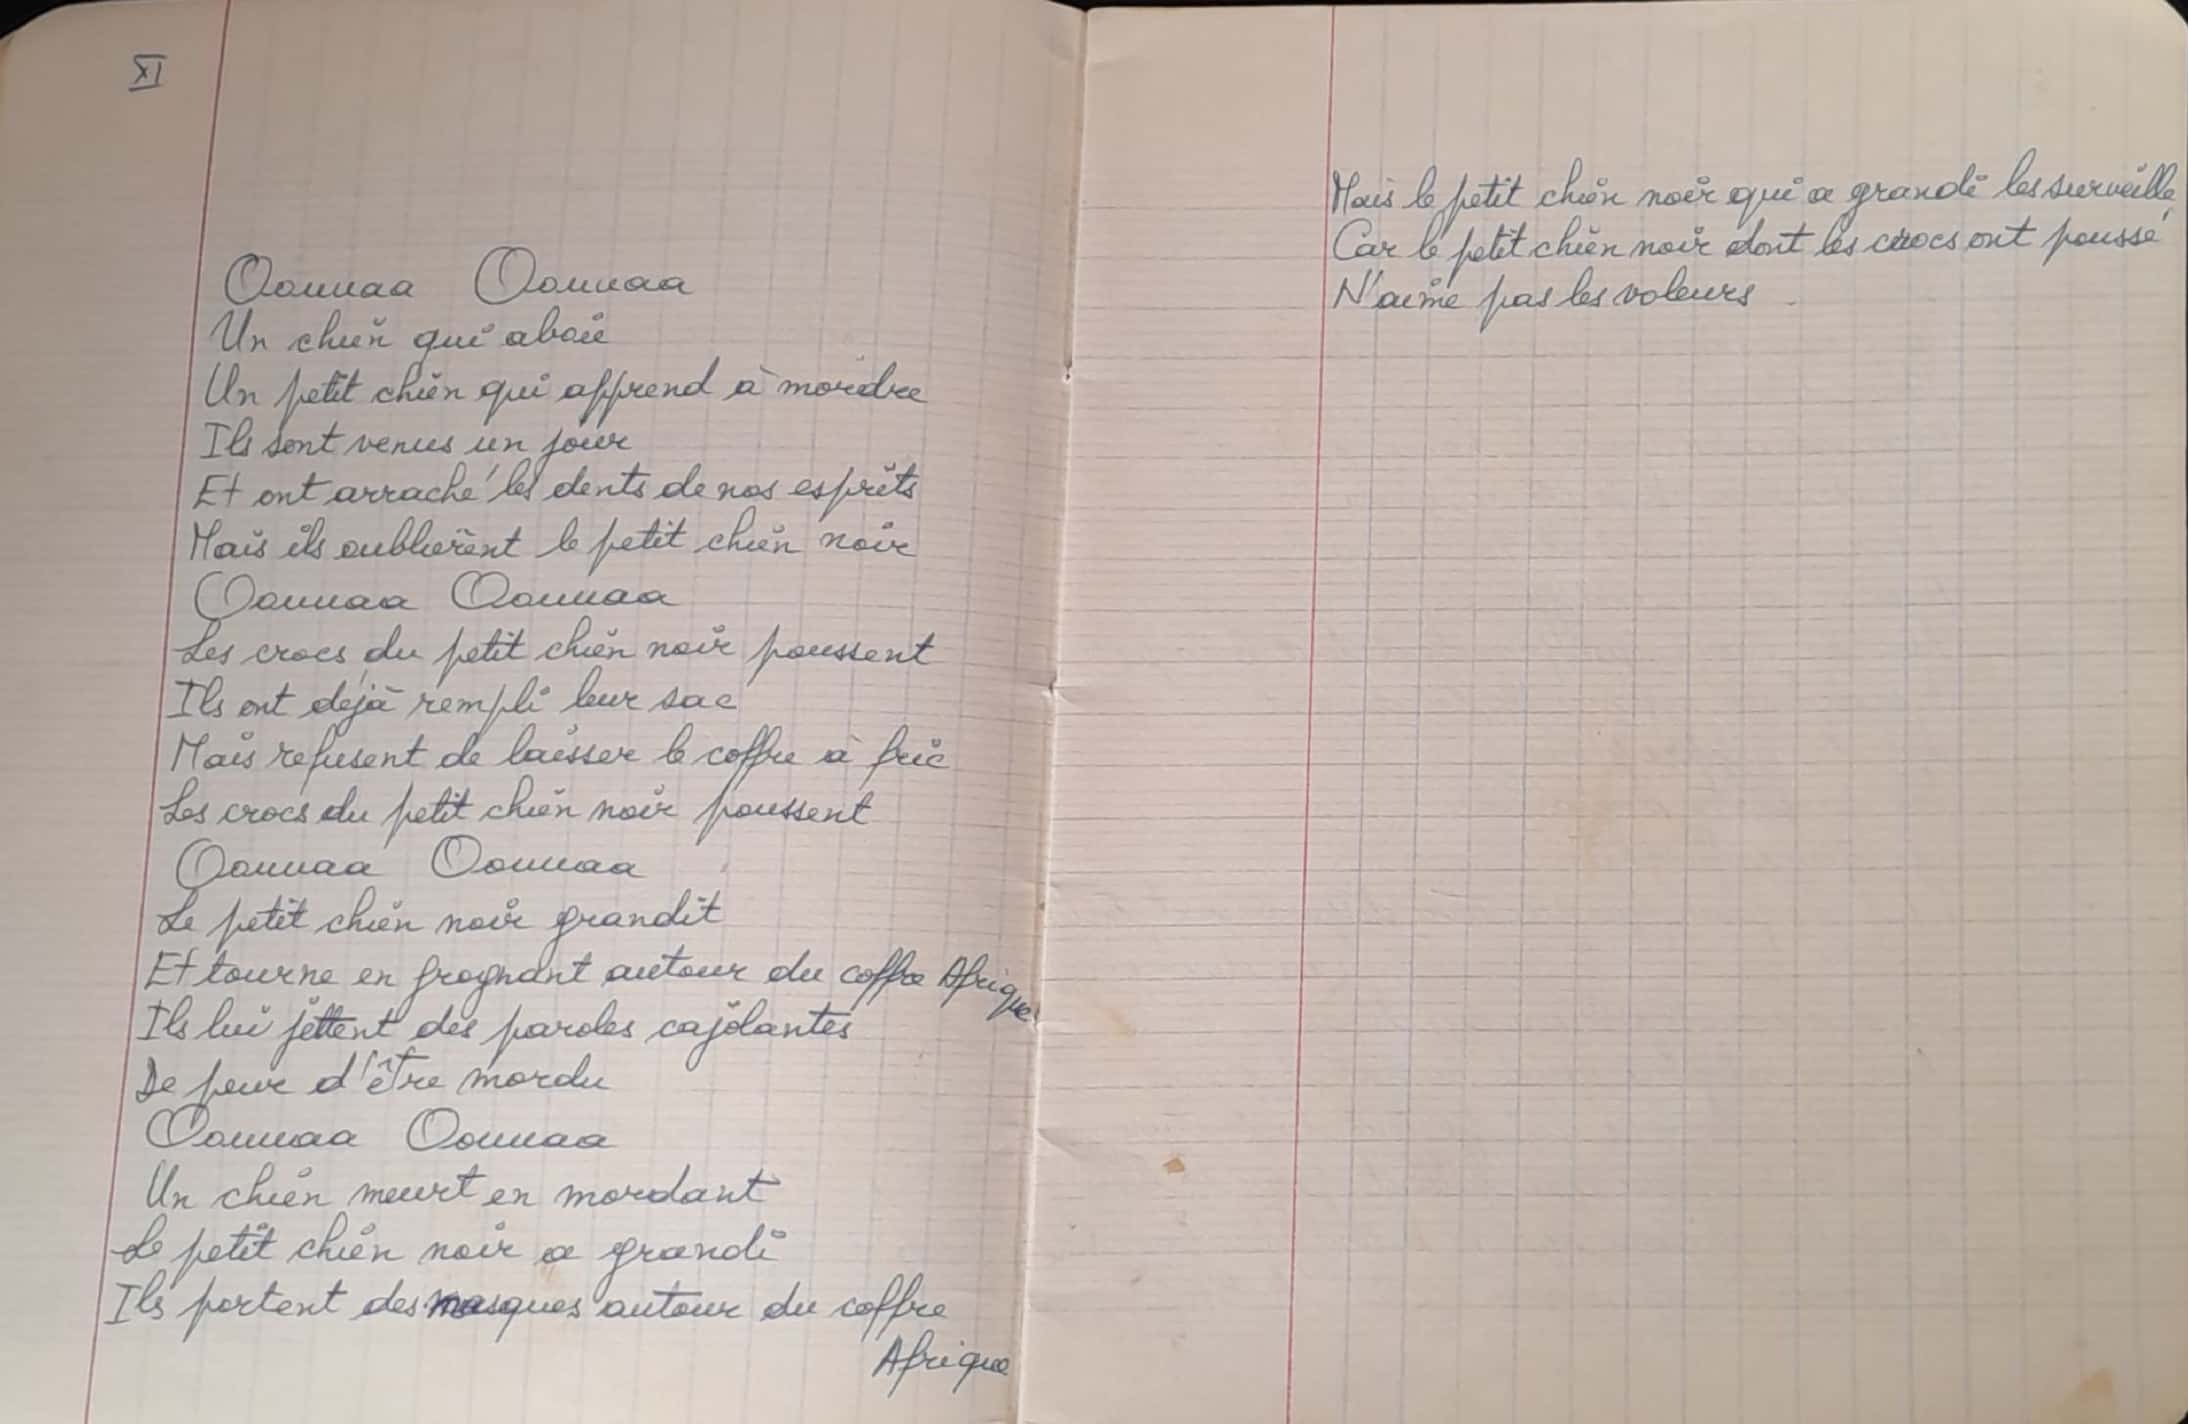 XI
Oouuaa Oouuaa
Un chien qui aboie
Un petit chien qui apprend à mordre
Ils sont venus un jour
Et ont arraché les dents de nos esprits
Mais ils oublièrent le petit chien noir
Oouuaa Oouuaa
Les crocs du petit chien noir poussent
Ils ont déjà rempli leur sac
Mais refusent de laisser le coffre à fric
Les crocs du petit chien noir poussent
Oouuaa Oouuaa
Le petit chien noir grandit
Et tourne en grognant autour du coffre Afrique
Ils lui jettent des paroles cajôlantes
De peur d'être mordu
Oouuaa Oouuaa
Un chien meurt en mordant
Le petit chien noir a grandi
Ils portent des masques autour du coffre
Afrique
Mais le petit chien noir qui a grandi les surveille
Car le petit chien noir dont les crocs ont poussé
N'aime pas les voleurs